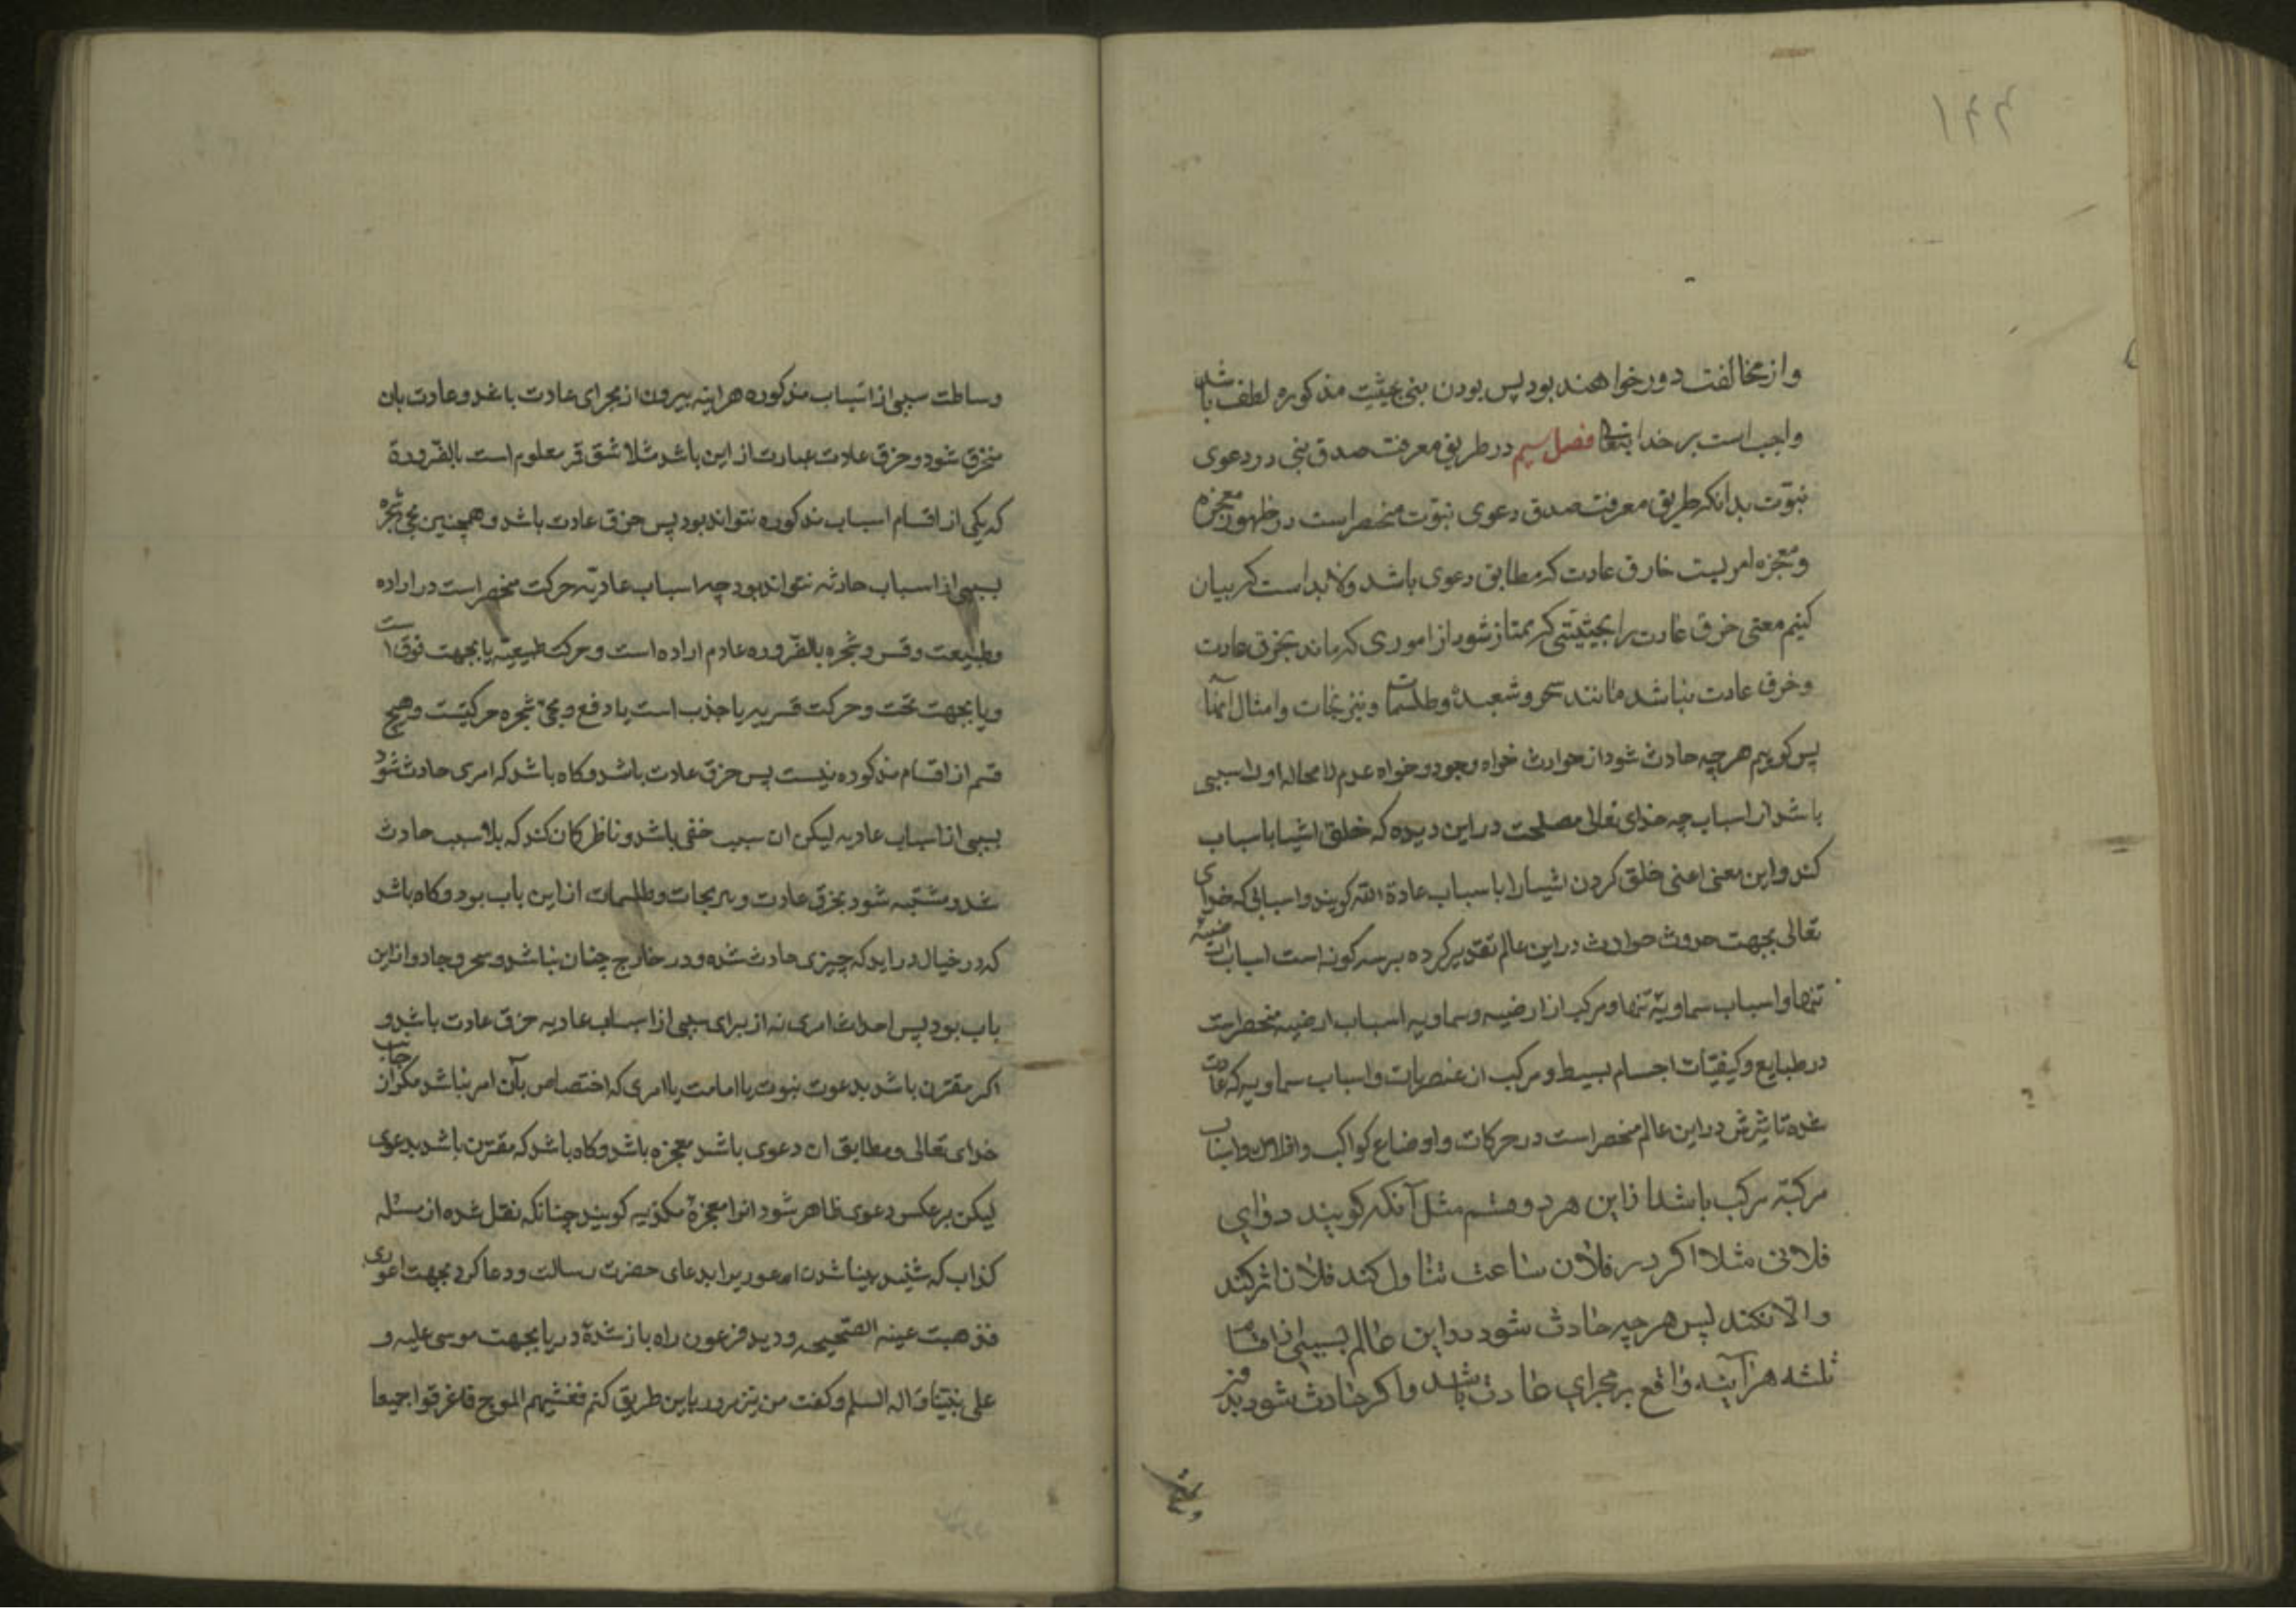 ۱۴۴
و از مخالفت دور خواهند بود پس بودن نبی بحیثیت مذکوره لطف باشد
واجب است بر خدایتعالی فصل سیم در طریق معرفت صدق نبی در دعوی
نبوّت بدانکه طریق معرفت صدق دعوی نبوّت منحصر است در ظهور معجزه
و معجزه امریست خارق عادت که مطابق دعوی باشد ولابد است که بیان
کنیم معنی خرق عادت را بحیثیتی که ممتاز شود از اموری که ماند بخرق عادت
و خرق عادت نباشد مانند سحر و شعبده و طلسمات و نیرنجات و امثال آنها
پس کوییم هر چه حادث شود از حوادث خواه وجود و خواه عدم لامحاله او را سببی
باشد از اسباب چه خدای تعالی مصلحت در این دیده که خلق اشیا باسباب
کند و این معنی اعنی خلق کردن اشیا را باسباب عادة الله کویند و اسبابی که خدای
تعالی بجهت حدوث حوادث در این عالم تقدیر کرده بر سه کونه است اسباب ارضیّه
تنها و اسباب سماویّه تنها و مرکب از ارضیه و سماویه اسباب ارضیه منحصر است
در طبایع و کیفیّات اجسام بسیط و مرکب از عنصریات و اسباب سماویه که عادت
شده تاثیرش در این عالم منحصر است در حرکات و اوضاع کواکب و افلاک و اسباب
مرکبّه مرکب باشد از این هر دو قسم مثل آنکه کویند دوای
فلانی مثلا اکر در فلان ساعت تناول کند فلان اثر کند
و الا نکند پس هر چه حادث شود در این عالم بسببی از اقسام
ثلثه هر آینه واقع بر مجرای عادت باشد و اکر حادث شود بدون
وساطت سببی از اسباب مذکوره هر اینه بیرون از مجرای عادت باشد و عادت بان
منخرق شود و خرق عادت عبارت از این باشد مثلا شق قمر معلوم است بالضّرورة
که یکی از اقسام اسباب مذکوره نتواند بود پس خرق عادت باشد و همچنین مجیء شجره
بسببی از اسباب حادثه نتواند بود چه اسباب عادیّه حرکت منحصر است در اراده
و طبیعت و قسر و شجره بالضّروره عادم اراده است و حرکت طبیعیّه یا بجهت فوق است
و یا بجهت تحت و حرکت قسریه یا جذب است یا دفع و مجیء شجره حرکتیست و هیچ
قسم از اقسام مذکوره نیست پس خرق عادت باشد و کاه باشد که امری حادث شود
بسببی از اسباب عادیه لیکن ان سبب خفی باشد و ناظر کان کند که بلا سبب حادث
شد و مشتبه شود بخرق عادت و نیرنجات و طلسمات از این باب بود و کاه باشد
که در خیال در اید که چیزی حادث شده و در خارج چنان نباشد و سحر و جادو از این
باب بود پس احداث امری نه از برای سببی از اسباب عادیه خرق عادت باشد و
اکر مقترن باشد بدعوت نبوت یا امامت یا امری که اختصاص بآن امر نباشد مکر از جانب
خدای تعالی و مطابق ان دعوی باشد معجزه باشد و کاه باشد که مقترن باشد بدعوی
لیکن بر عکس دعوی ظاهر شود انرا معجزهٔ مکذبه کویند چنانکه نقل شده از مسئله
کذاب که شنید بینا شدن اعور را بدعای حضرت رسالت و دعا کرد بجهت اعوری
فذهبت عینه الصّحیحه و دید فرعون راه باز شدهٔ دریا بجهت موسی علیه و
علی نبیّنا و اله السلم و کفت من نیز مرور باین طریق کنم فغشیهم الموج فاغرقوا جمیعا